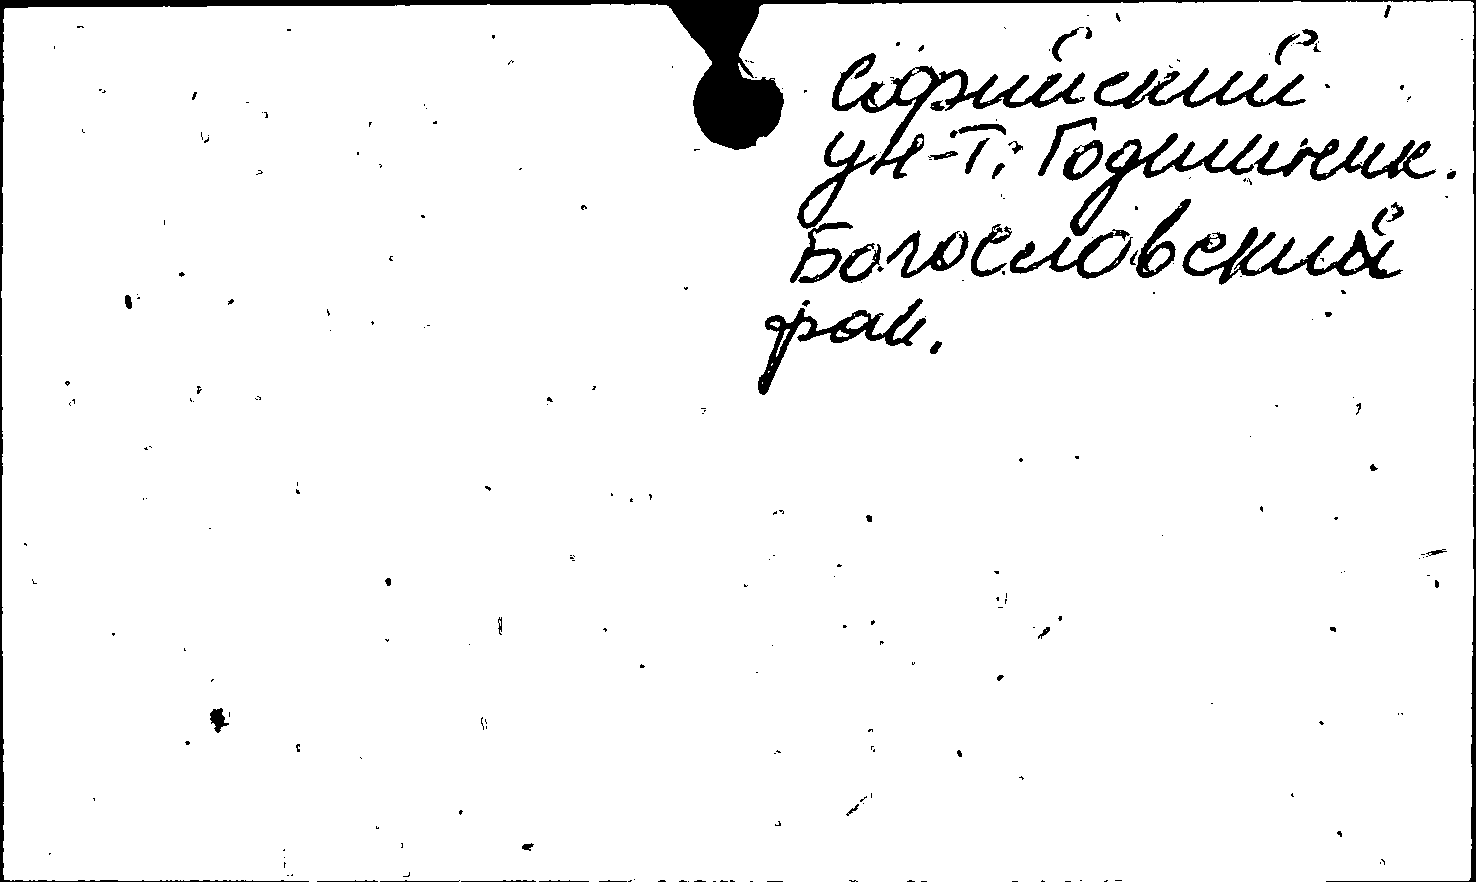 Софийский
ун-т. Годишник.
Богословский
фак.